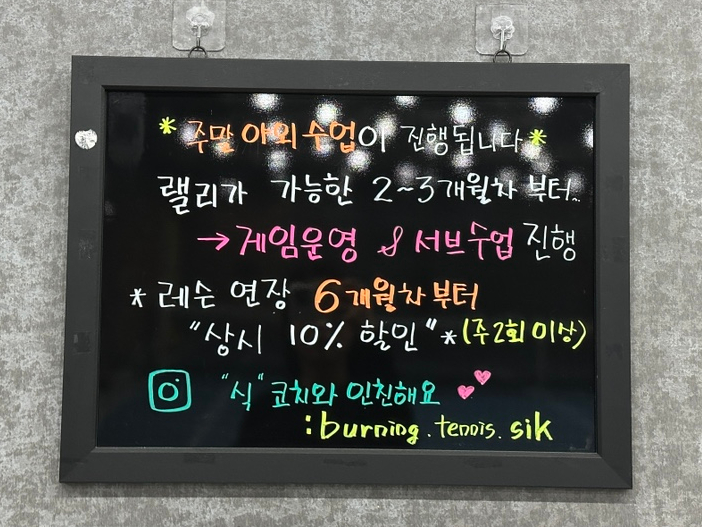 * 주말 야외 수업이 진행됩니다 *
랠리가 가능한 2~3개월차 부터..
→ 게임운영 & 서브수업 진행
* 레슨 연장 6개월차부터
"상시 10% 할인" * (주2회 이상)
"식" 코치와 인친해요
: burning.tennis.sik